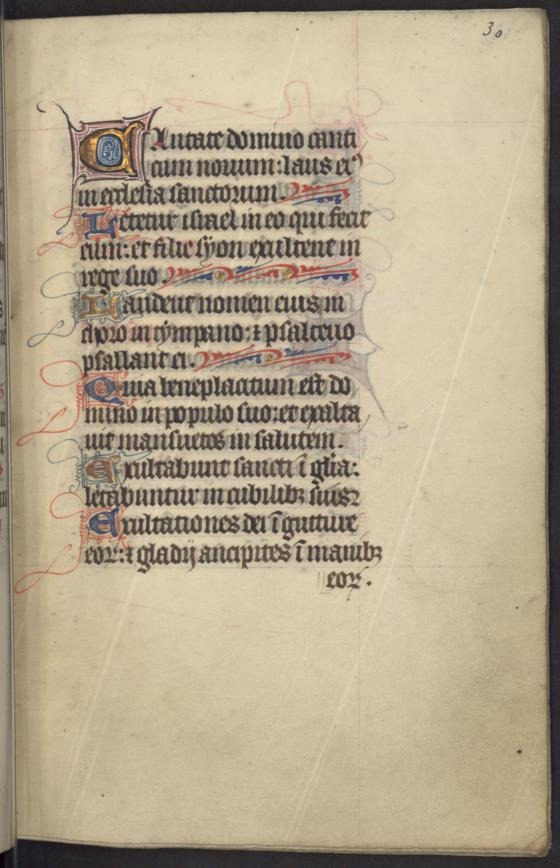 30
CAntate domino canti
cum nouum: laus eiꝰ
in ecclesia sanctorum.
Letetur israel in eo qui fecit
eum: et filie syon exultent in
rege suo.
Laudent nomen eius in
choro in tympano: ⁊ psalterio
psallant ei.
Quia beneplacitum est do
mino in populo suo: et exalta
uit mansuetos in salutem.
Exultabunt sancti ī gl̄ia:
letabuntur in cubilibꝫ suis
Exultationes dei ī gutture
eoꝝ: ⁊ gladij ancipites ī manibꝫ
eoꝝ.